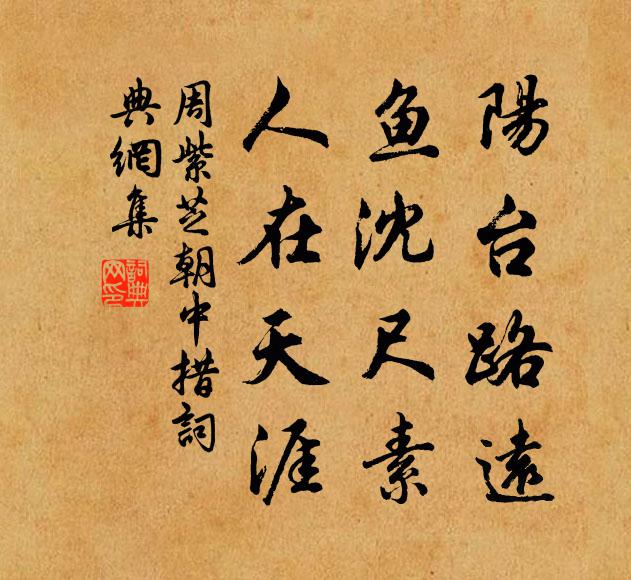 陽台路遠
鱼沈尺素
人在天涯
周紫芝朝中措詞
典網集
詞典
网印